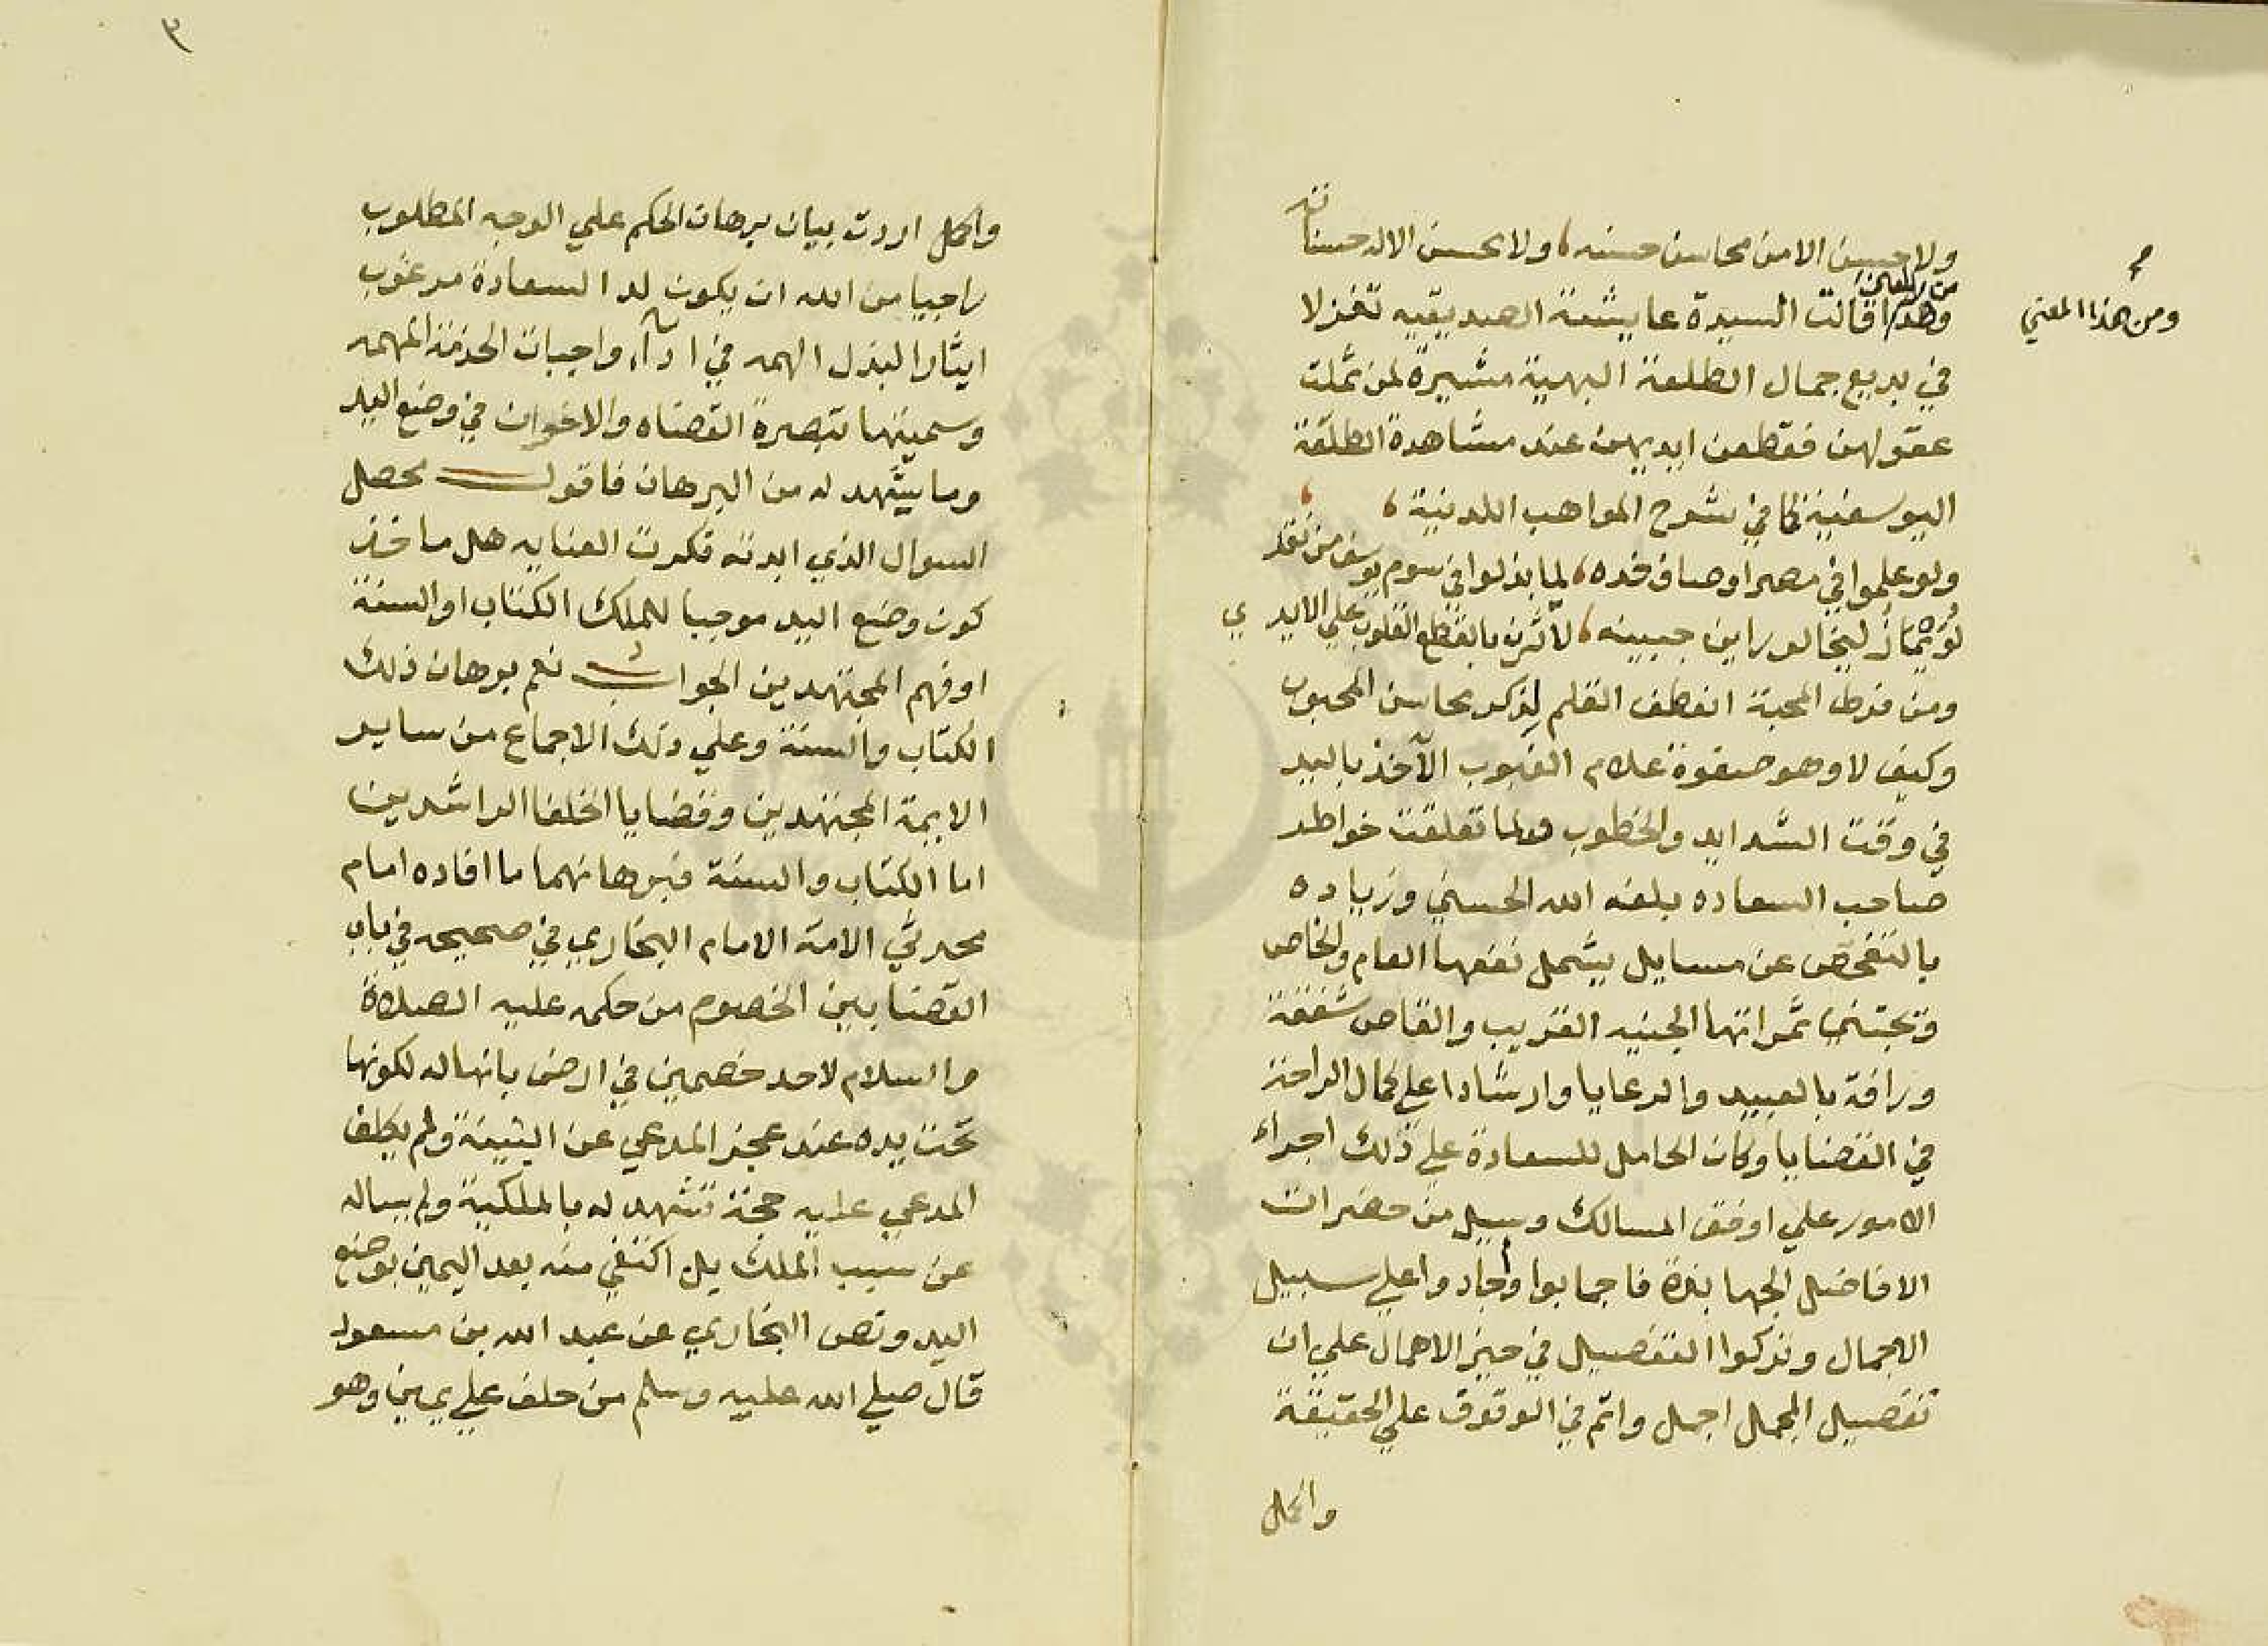 ولا حسين الا من محاسن حسنه ، ولا محسن الا له حسناته
من هذا المعني
وهذا قالت السيدة عايشة الصديقيه تغزلا
في بديع جمال الطلعة البهية مشيرة لمن ثملت
عقولهن فقطعن ايديهن عند مشاهدة الطلعة
اليوسفية كما في شرح المواهب اللدنية ،
ولو علموا في مصر اوصاف خده ، لما بذلوا في سوم يوسف من نقد
لو زليخا لو راين جبينه ، لآثرن بالقطع القلوب علي الايدي
ومن فرط المحبة انعطف القلم لذكر محاسن المحبوب
وكيف لا وهو صفوة علام الغيوب الآخذ باليد
في وقت الشدايد والخطوب ولما تعلقت خواطر
صاحب السعاده بلغه الله الحسني وزياده
بالتفحص عن مسايل يشمل نفعها العام والخاص
وتجتني ثمراتها الجنيه القريب والقاص شفقة
ورافة بالعبيد والرعايا وارشادا علي كمال الراحة
في القضايا وكان الحامل للسعادة علي ذلك اجراء
الامور علي اوفق المسالك وسيل من حضرات
الافاضل الجهابذة فاجابوا واجادوا علي سبيل
الاجمال وتركوا التفصيل في حيز الاهمال علي ان
تفصيل المجمل اجمل واتم في الوقوف علي الحقيقة
واكمل
ومن هذا المعني
٣
واكمل اردت بيان برهان الحكم علي الوجه المطلوب
راجيا من الله ان يكون لد السعادة مرغوب
ايثارا لبذل الهمه في ادآء واجبات الخدمة المهمه
وسميتها تبصرة القضاه والاخوان في وضع اليد
وما يشهد له من البرهان فاقول محصل
السوال الذي ابدته فكرت العنايه هل ماخذ
كون وضع اليد موجبا للملك الكتاب او السنة
اوفهم المجتهدين الجواب نعم برهان ذلك
الكتاب والسنة وعلي ذلك الاجماع من ساير
الايمة المجتهدين وقضايا الخلفا الراشدين
اما الكتاب والسنة فبرهانهما ما افاده امام
محدثي الامة الامام البخاري في صحيحه في باب
القضا بين الخصوم من حكمه عليه الصلاة
والسلام لاحد خصمين في ارض بانها له لكونها
تحت يده عند عجز المدعي عن البينة ولم يكلف
المدعي عليه حجة تشهد له بالملكية ولم يساله
عن سبب الملك بل اكتفي منه بعد اليمين بوضع
اليد ونص البخاري عن عبد الله بن مسعود
قال صلي الله عليه وسلم من حلف علي يمين وهو